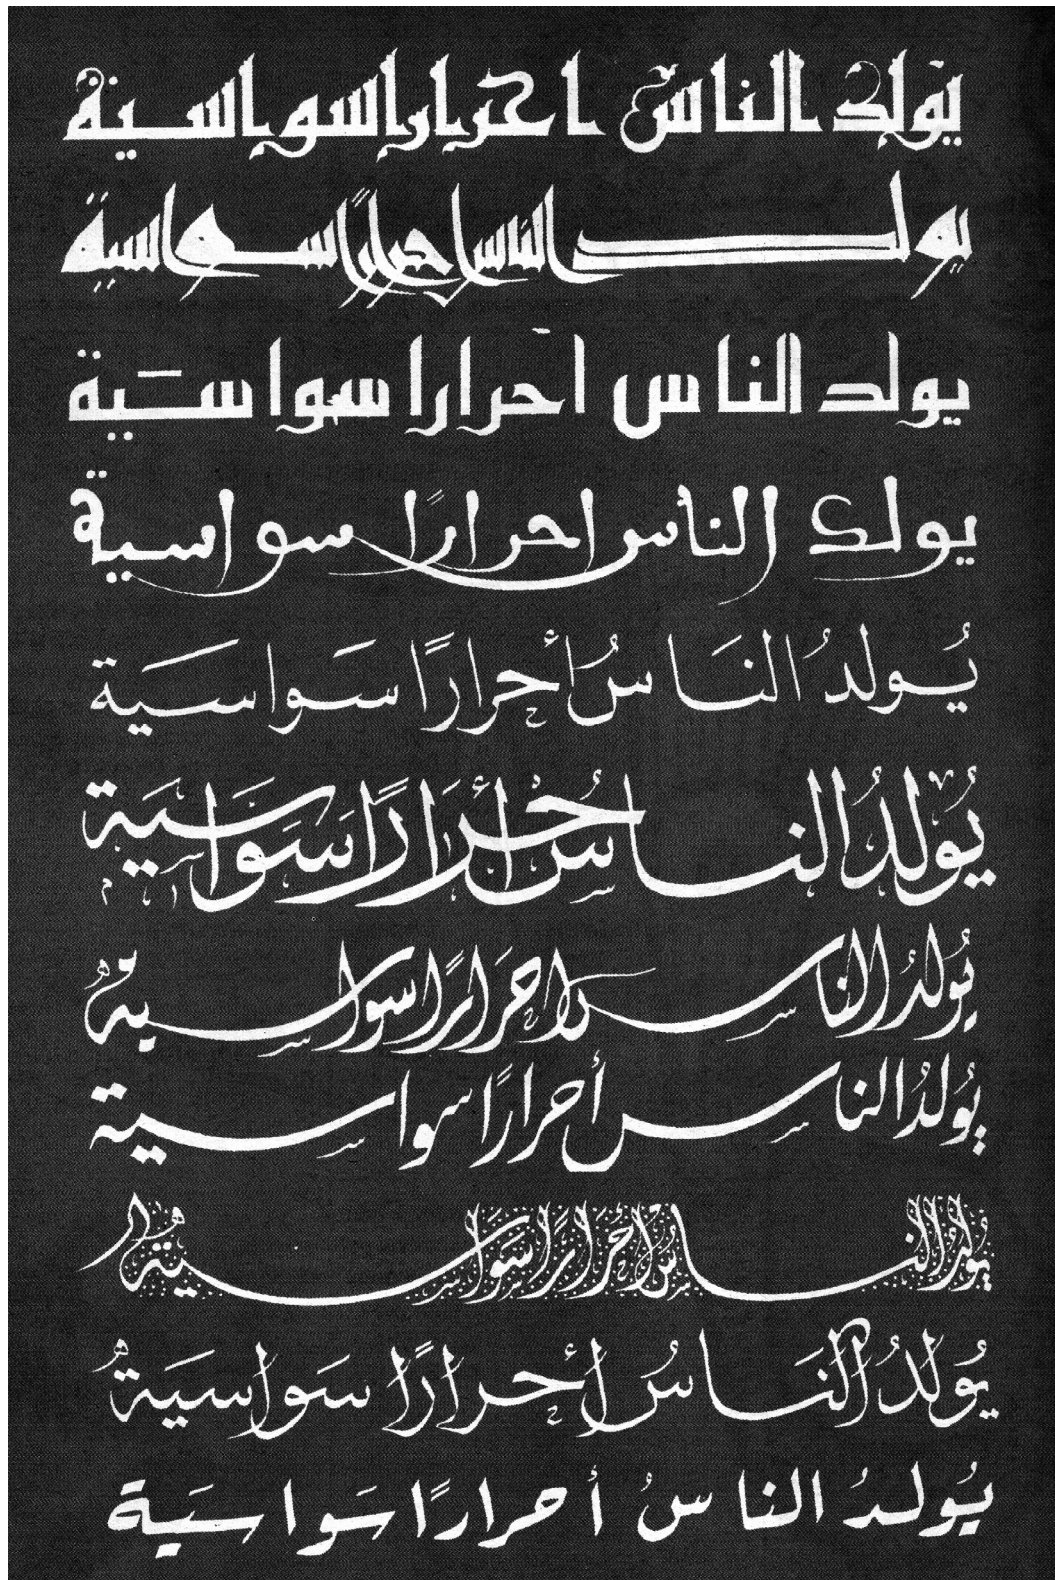 يولد الناس احرارا سواسية
يولد الناس احرارًا سواسية
يولد الناس احرارا سوا سَية
يولد الناس احرارًا سواسية
يُولدُ النَاسُ أحرارًا سَواسَية
يُولَدُ الناسُ أحْرَارًا سَوَاسَيَة
يُولدُ الناس احرَارًا سواسيةٌ
يُولدُ الناس أحرارًا سواسية
يُولدُ الناسُ أحرَارًا سَوَاسيةٌ
يُولَدُ النَاسُ أحرارًا سَواسَيَةٌ
يُولدُ الناسُ أحرارًا سَواسَيَة